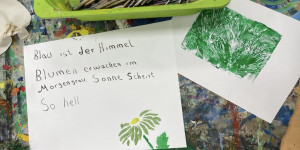 Blau ist der Himmel
Blumen erwachen im
Morgengrau Sonne Scheint
So hell